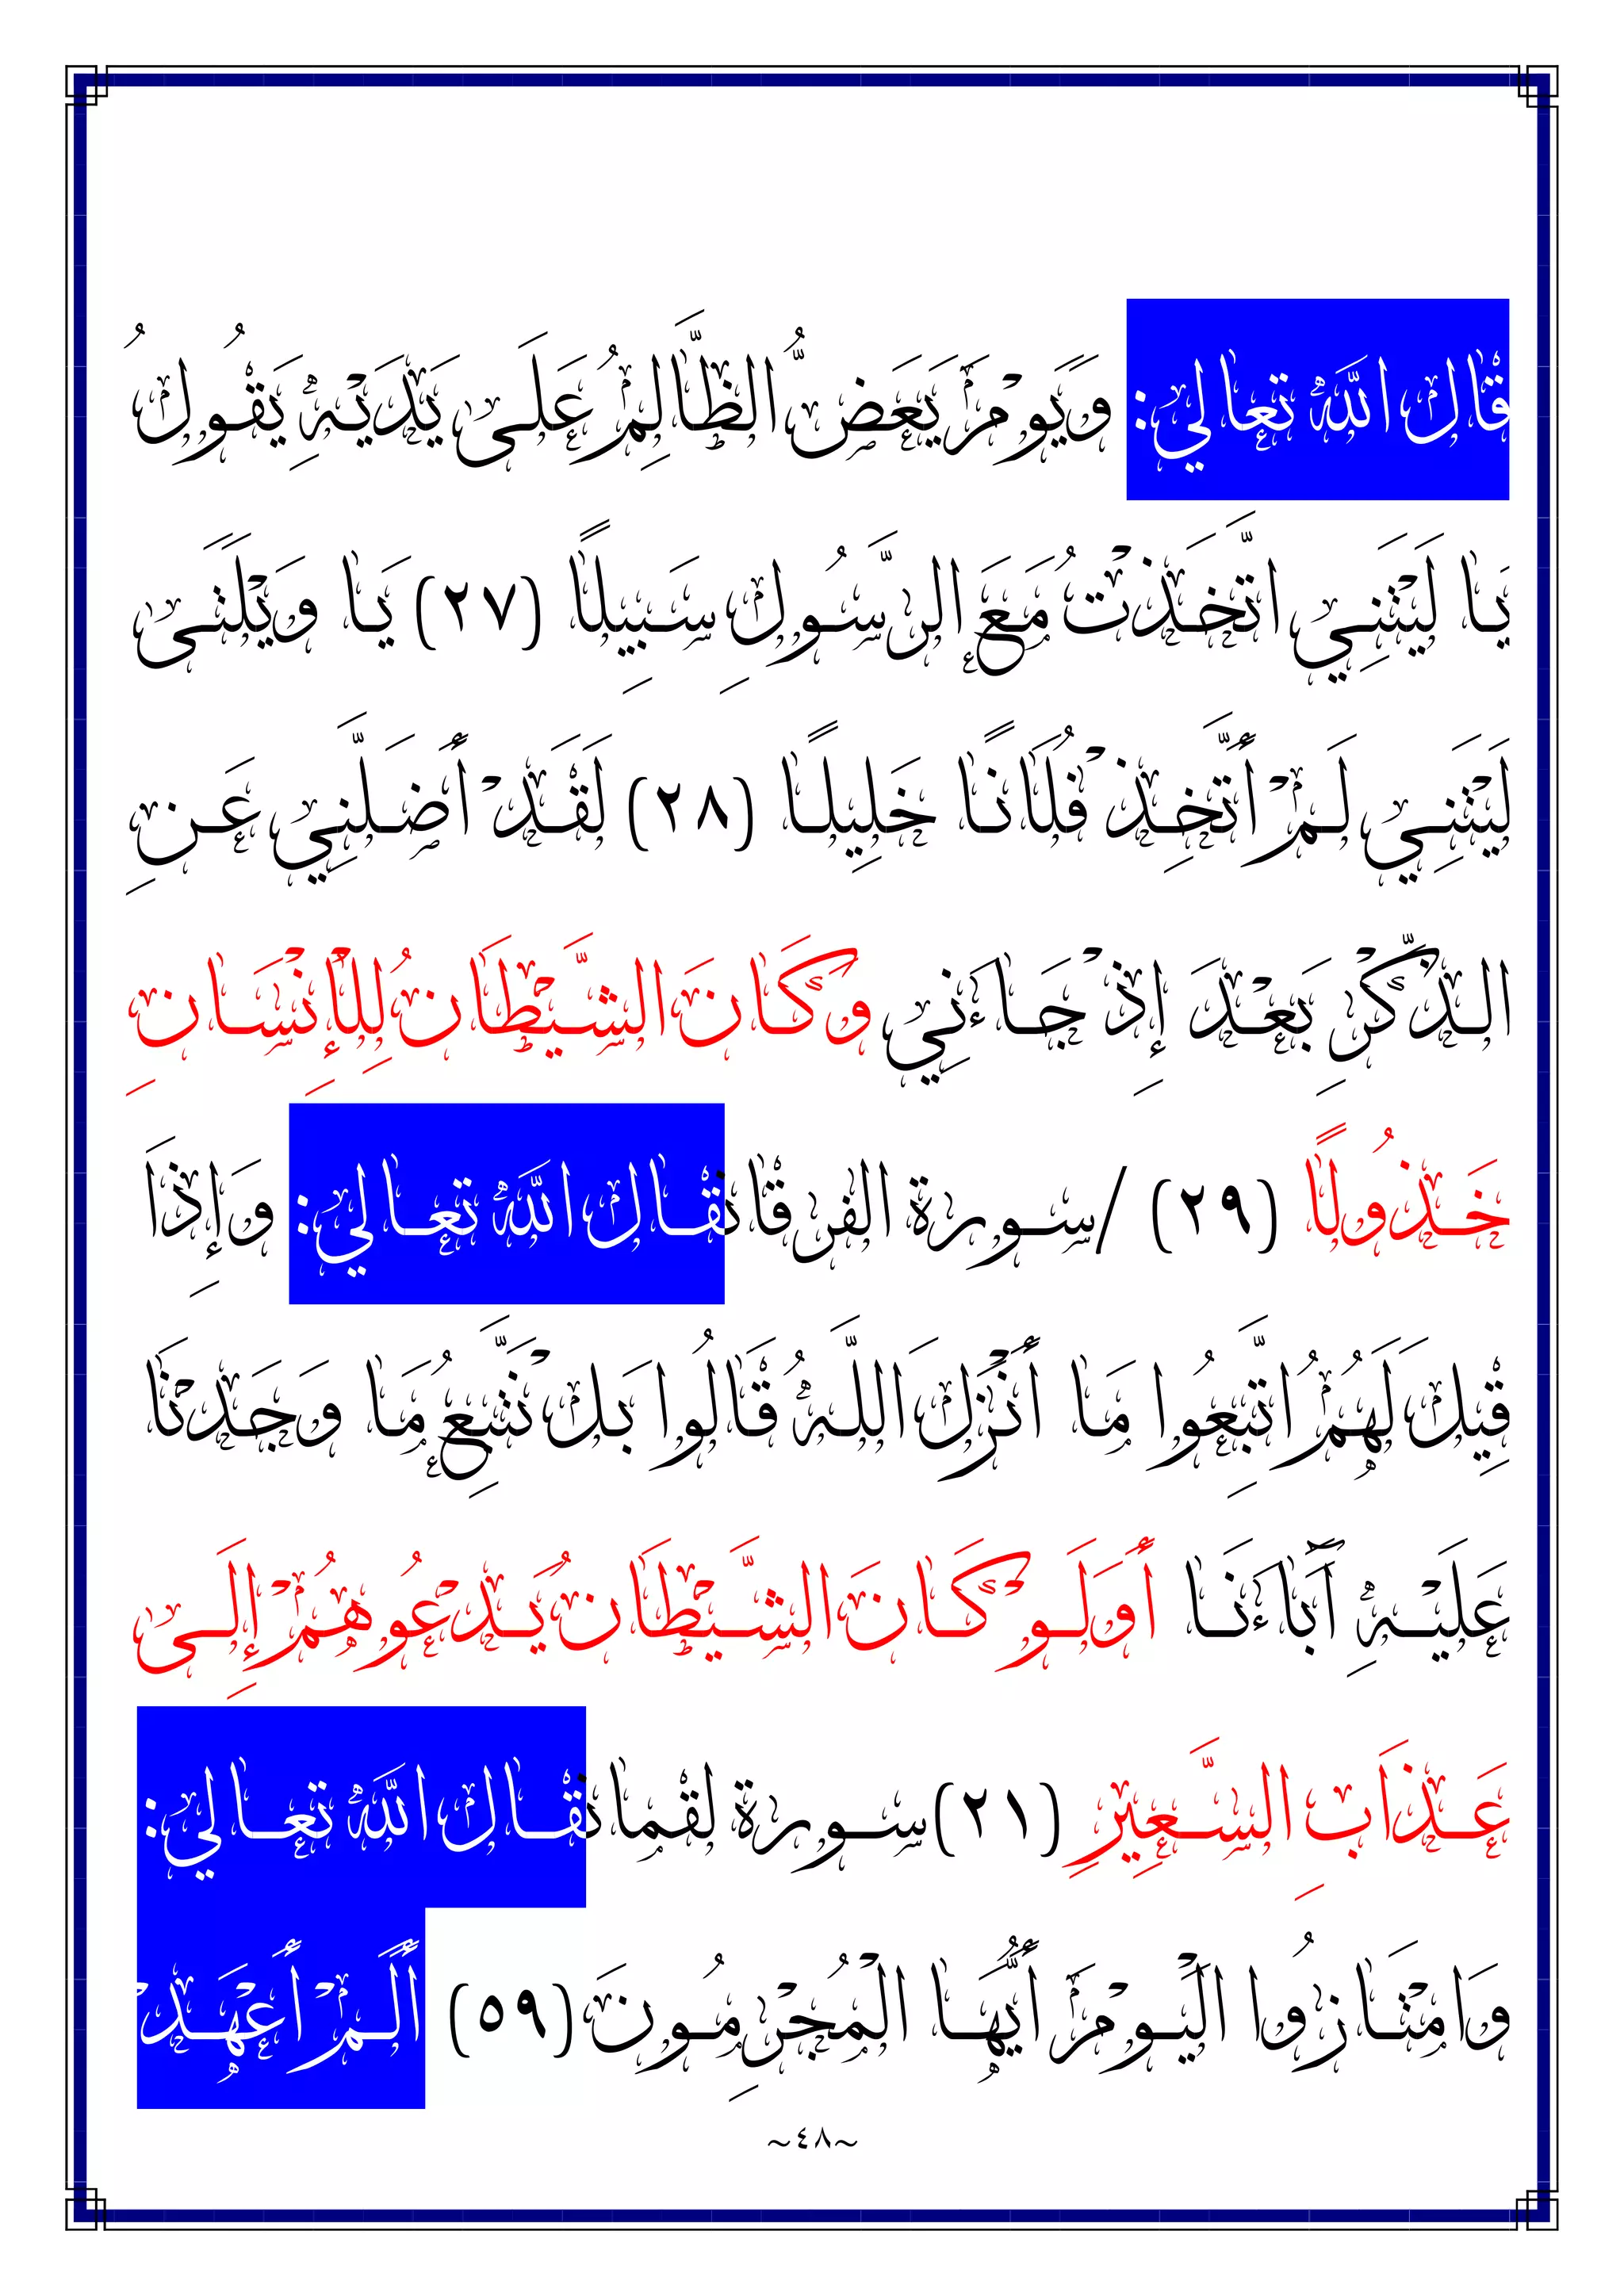 قال الله تعالي: وَيَوْمَ يَعَضُّ الظَّالِمُ عَلَى يَدَيْهِ يَقُولُ
يَا لَيْتَنِي اتَّخَذْتُ مَعَ الرَّسُولِ سَبِيلًا (٢٧) يَا وَيْلَتَى
لَيْتَنِي لَمْ أَتَّخِذْ فُلَانًا خَلِيلًا (٢٨) لَقَدْ أَضَلَّنِي عَنِ
الذِّكْرِ بَعْدَ إِذْ جَاءَنِي وَكَانَ الشَّيْطَانُ لِلْإِنْسَانِ
خَذُولًا (٢٩) /سورة الفرقانقال الله تعالي: وَإِذَا
قِيلَ لَهُمُ اتَّبِعُوا مَا أَنْزَلَ اللَّهُ قَالُوا بَلْ نَتَّبِعُ مَا وَجَدْنَا
عَلَيْهِ آَبَاءَنَا أَوَلَوْ كَانَ الشَّيْطَانُ يَدْعُوهُمْ إِلَى
عَذَابِ السَّعِيرِ (٢١)سورة لقمانقال الله تعالي:
وَامْتَازُوا الْيَوْمَ أَيُّهَا الْمُجْرِمُونَ(٥٩) أَلَمْ أَعْهَدْ
~٤٨~